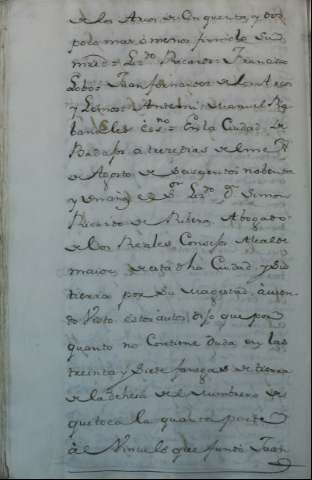 de los Arcos de Cinquenta, y dos
poco mas ó menos firmolo Su
mrd = Lizdo Ricardo = Francisco
Lobo = Juan fernandez de los Arcos
y Lemos = Antemi = Manuel
essno = En la Ciudad de
Badajoz a trece dias del mes
de Agosto de Setezientos nobenta
y el Sr Lizdo Dn Simon
Ricardo de Ribera Abogado
de los Reales Consejos Alcalde
maior de esta dha Ciudad y Su
tierra por Su Magestad, avien
do Visto estos autos dijo que por
quanto no Contiene duda en las
treinta y Siete fanegas de tierra
de la dehesa de el Sombrero de
que toca la quarta parte
al Vinculo que fundó Juan